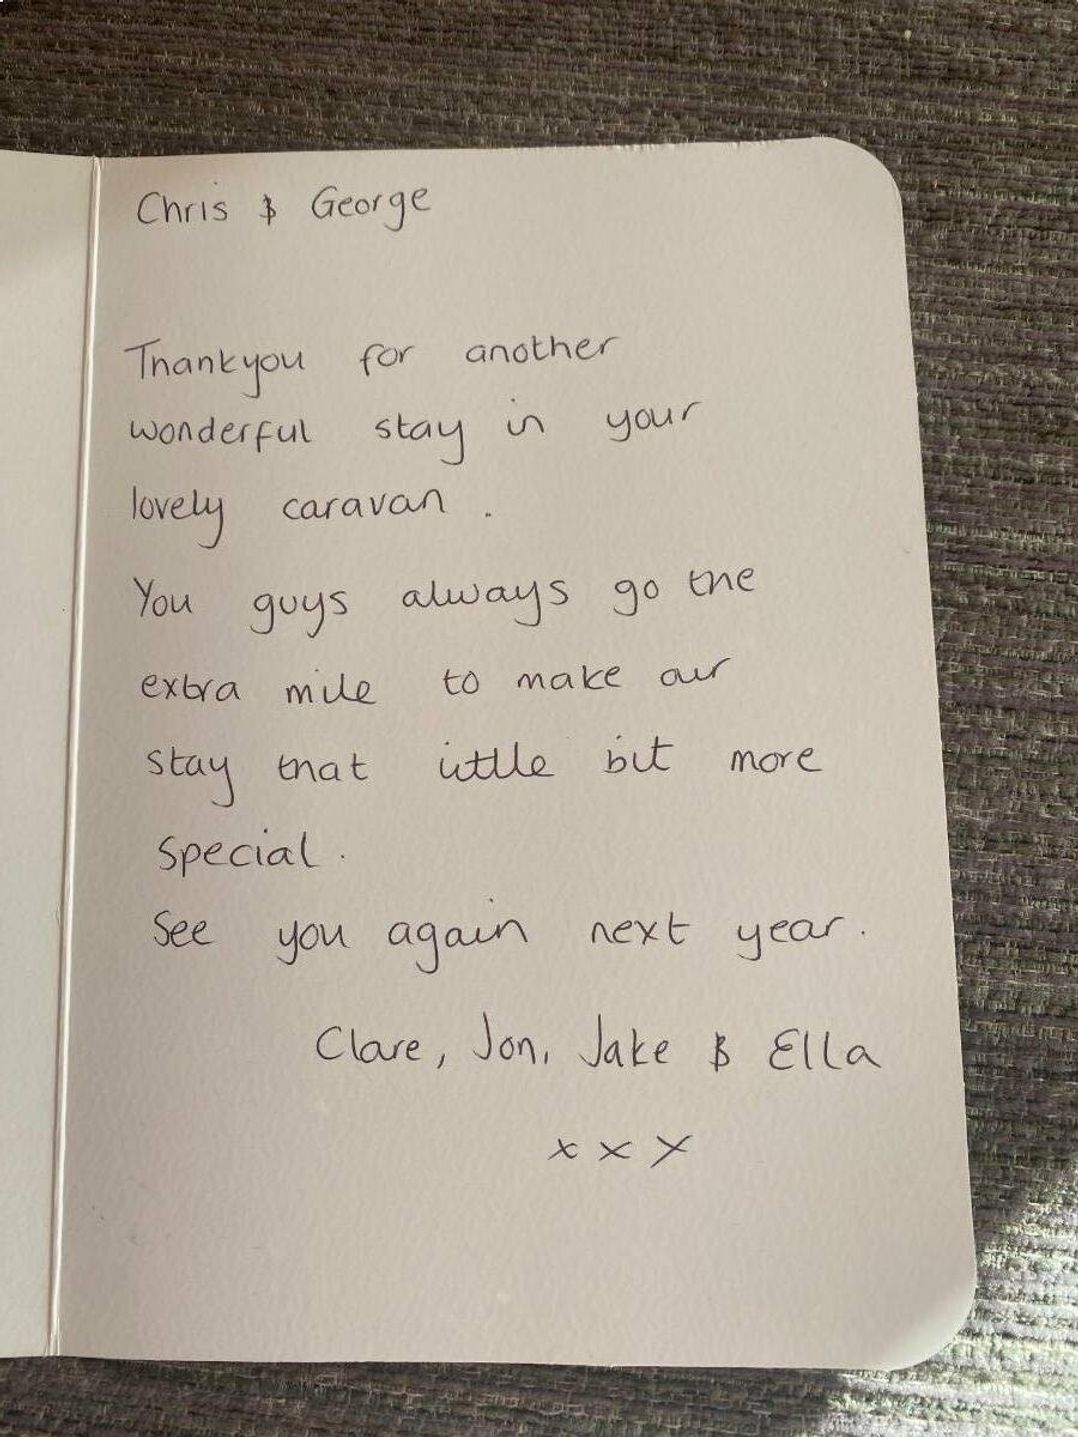 Chris & George
Thankyou for another
wonderful stay in your
lovely caravan.
You guys always go the
extra mile to make our
stay that little bit more
special.
See you again next year.
Clare, Jon, Jake & Ella
x x x